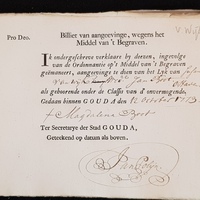 Pro Deo.
Billiet van aangeevinge, wegens het
Middel van 't Begraven.
V. Wijk
IK ondergeschreve verklaare by dezen, ingevolge
van de Ordonnantie op 't Middel van 't Begraven
geëmaneert, aangeevinge te doen van het Lyk van
als gehoorende onder de Classis van d' onvermogende.
Gedaan binnen GOUDA, den 12 October
Magdalena
Ter Secretarye der Stad GOUDA,
Getrekend op datum als boven.